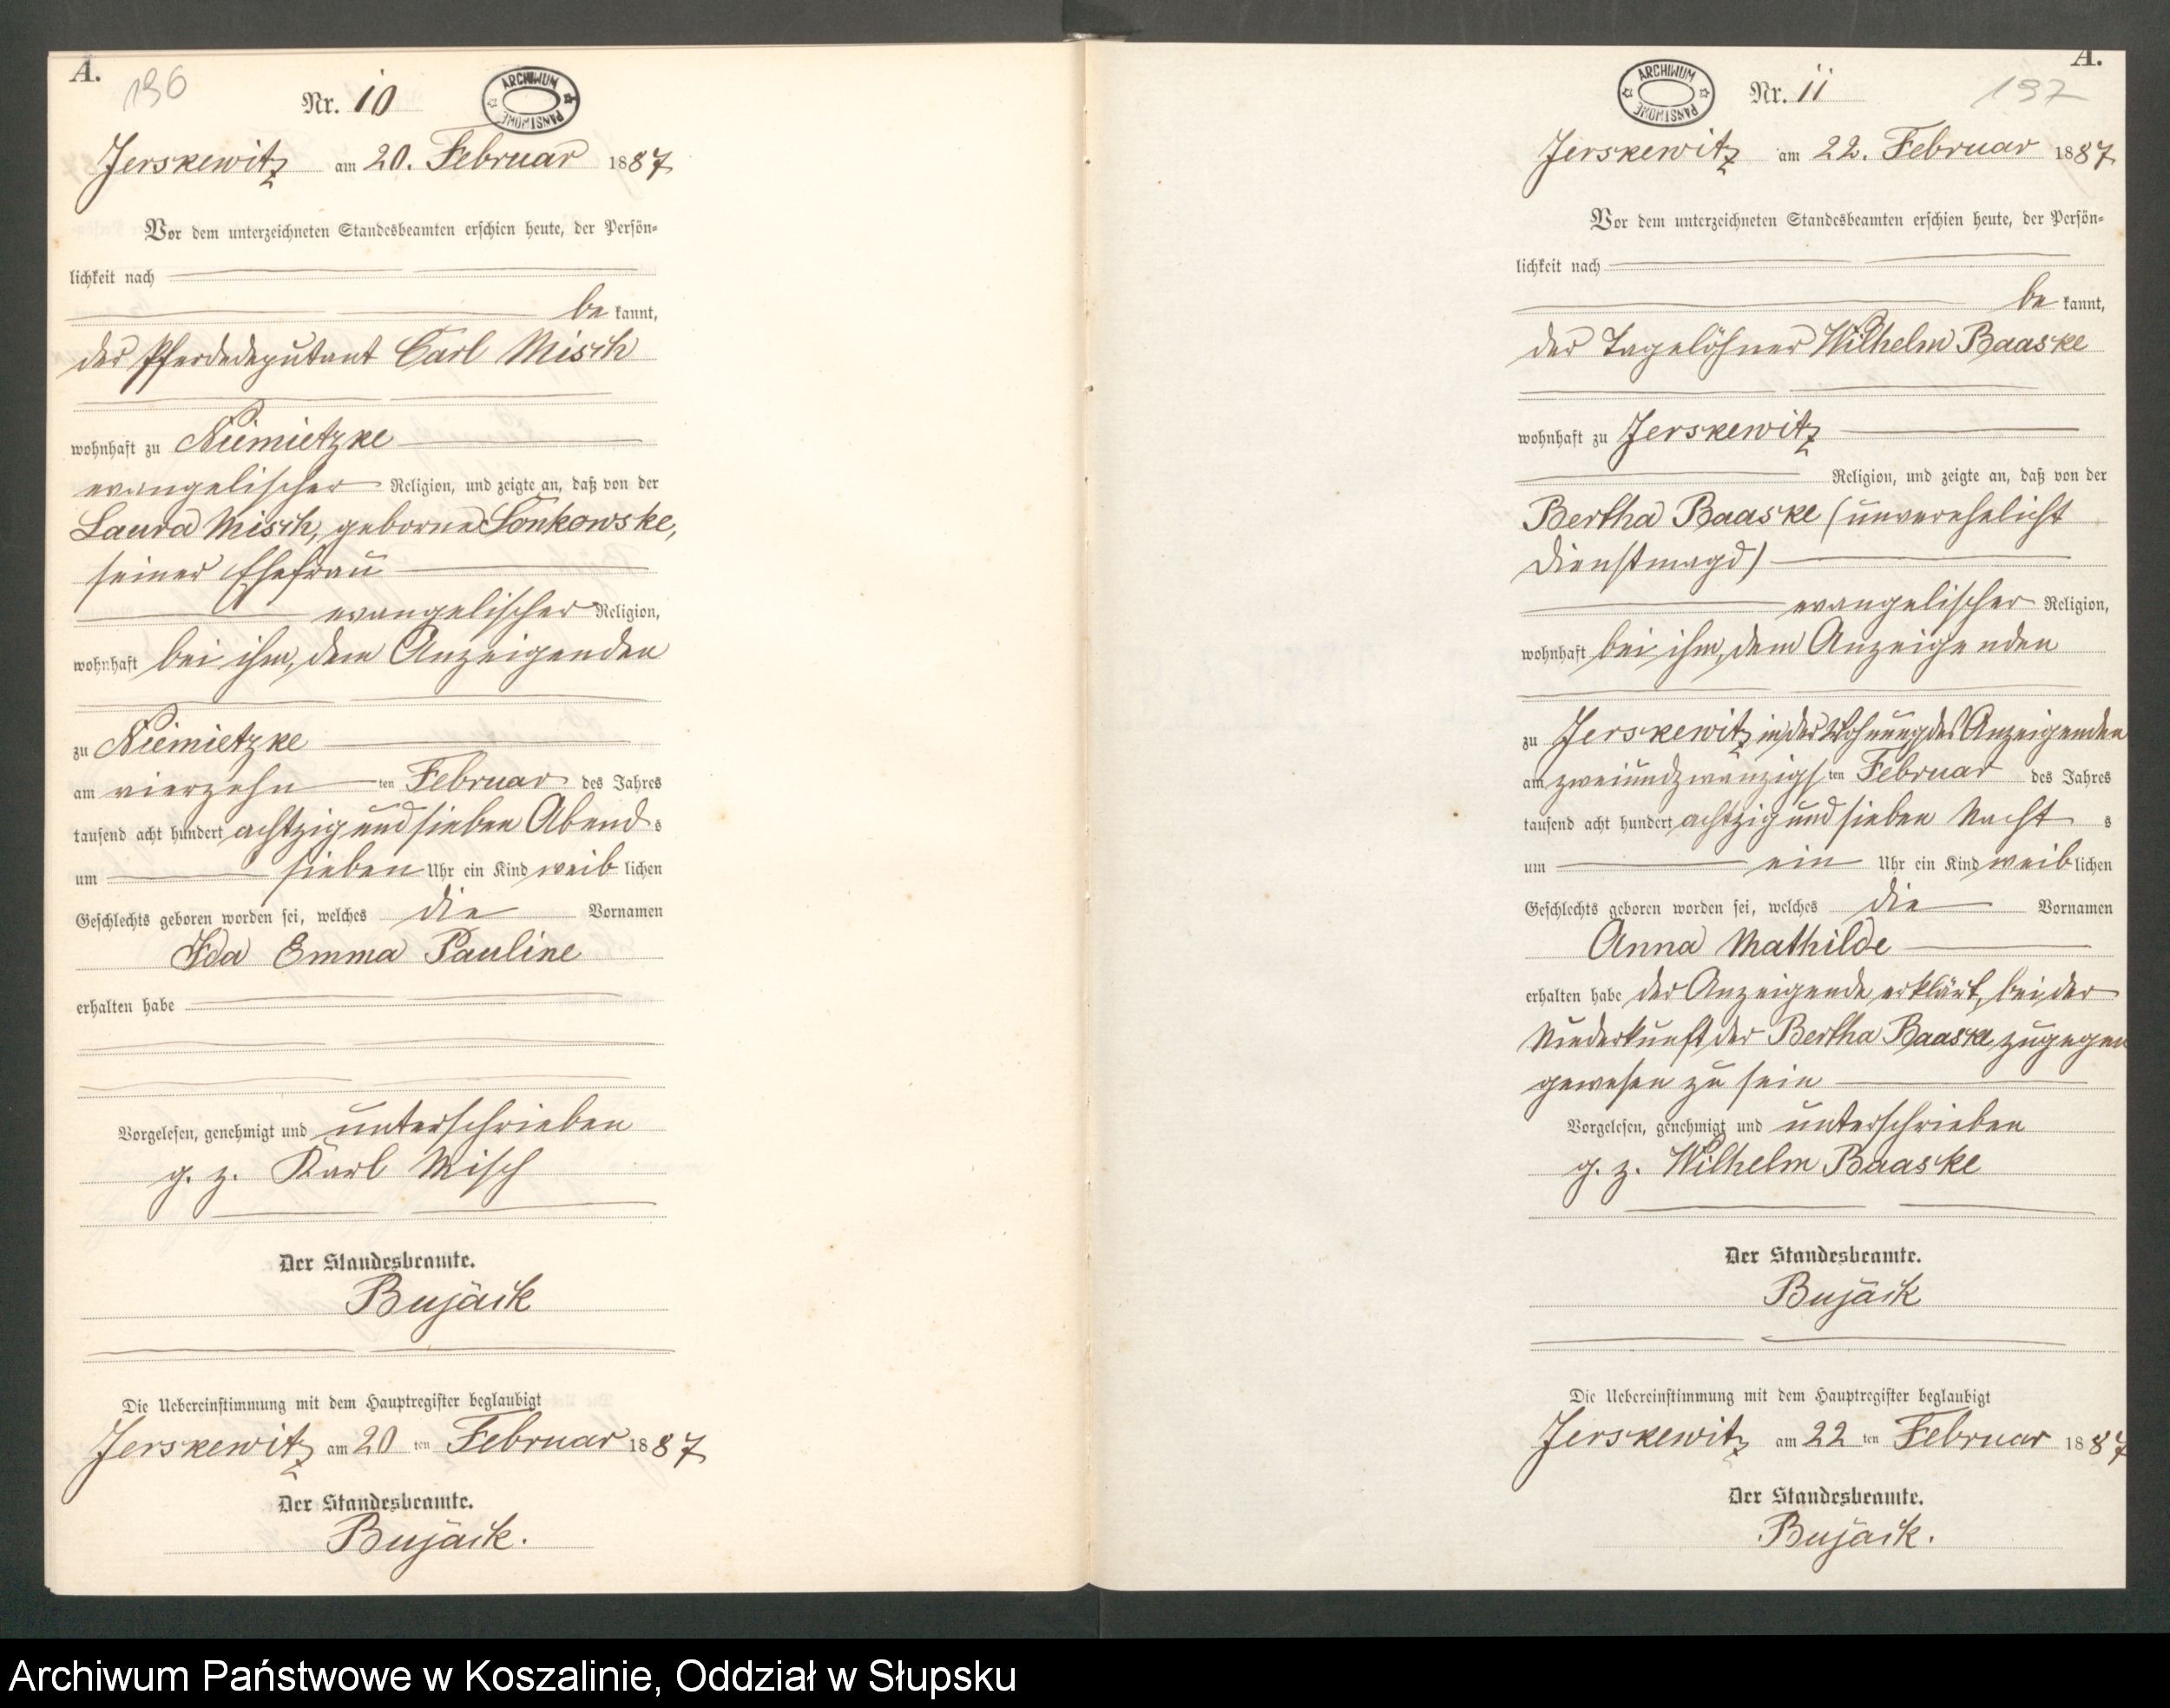 A.
196
Nr. 10
ARCHIWUM PAŃSTWOWE
Jerskewitz am 20. Februar 1887
Vor dem unterzeichneten Standesbeamten erschien heute, der Persön-
lichkeit nach
be kannt,
der Pferdedeputant Carl Misch
wohnhaft zu Niemietzke
evangelischer Religion, und zeigte an, daß von der
Laura Misch, geborne Lonkowske,
seiner Ehefrau
evangelischer Religion,
wohnhaft bei ihm, dem Anzeigenden
zu Niemietzke
am vierzehn ten Februar des Jahres
tausend acht hundert achtzig und sieben Abend s
um sieben Uhr ein Kind weib lichen
Geschlechts geboren worden sei, welches die Vornamen
Ida Emma Pauline
erhalten habe
Vorgelesen, genehmigt und unterschrieben
g. z. Karl Misch
Der Standesbeamte.
Bujack
Die Uebereinstimmung mit dem Hauptregister beglaubigt
Jerskewitz am 20 ten Februar 1887
Der Standesbeamte.
Bujack.
A.
197
ARCHIWUM PAŃSTWOWE
Nr. 11
Jerskewitz am 22. Februar 1887
Vor dem unterzeichneten Standesbeamten erschien heute, der Persön-
lichkeit nach
be kannt,
der Tagelöhner Wilhelm Baaske
wohnhaft zu Jerskewitz
Religion, und zeigte an, daß von der
Bertha Baaske (unverehelicht
Dienstmagd)
evangelischer Religion,
wohnhaft bei ihm, dem Anzeigenden
zu Jerskewitz in der Wohnung des Anzeigenden
am zweiundzwanzigs ten Februar des Jahres
tausend acht hundert achtzig und sieben Nacht s
um ein Uhr ein Kind weib lichen
Geschlechts geboren worden sei, welches die Vornamen
Anna Mathilde
erhalten habe der Anzeigende erklärt, bei der
Niederkunft der Bertha Baaske zugegen
gewesen zu sein
Vorgelesen, genehmigt und unterschrieben
g. z. Wilhelm Baaske
Der Standesbeamte.
Bujack
Die Uebereinstimmung mit dem Hauptregister beglaubigt
Jerskewitz am 22 ten Februar 1887
Der Standesbeamte.
Bujack.
Archiwum Państwowe w Koszalinie, Oddział w Słupsku